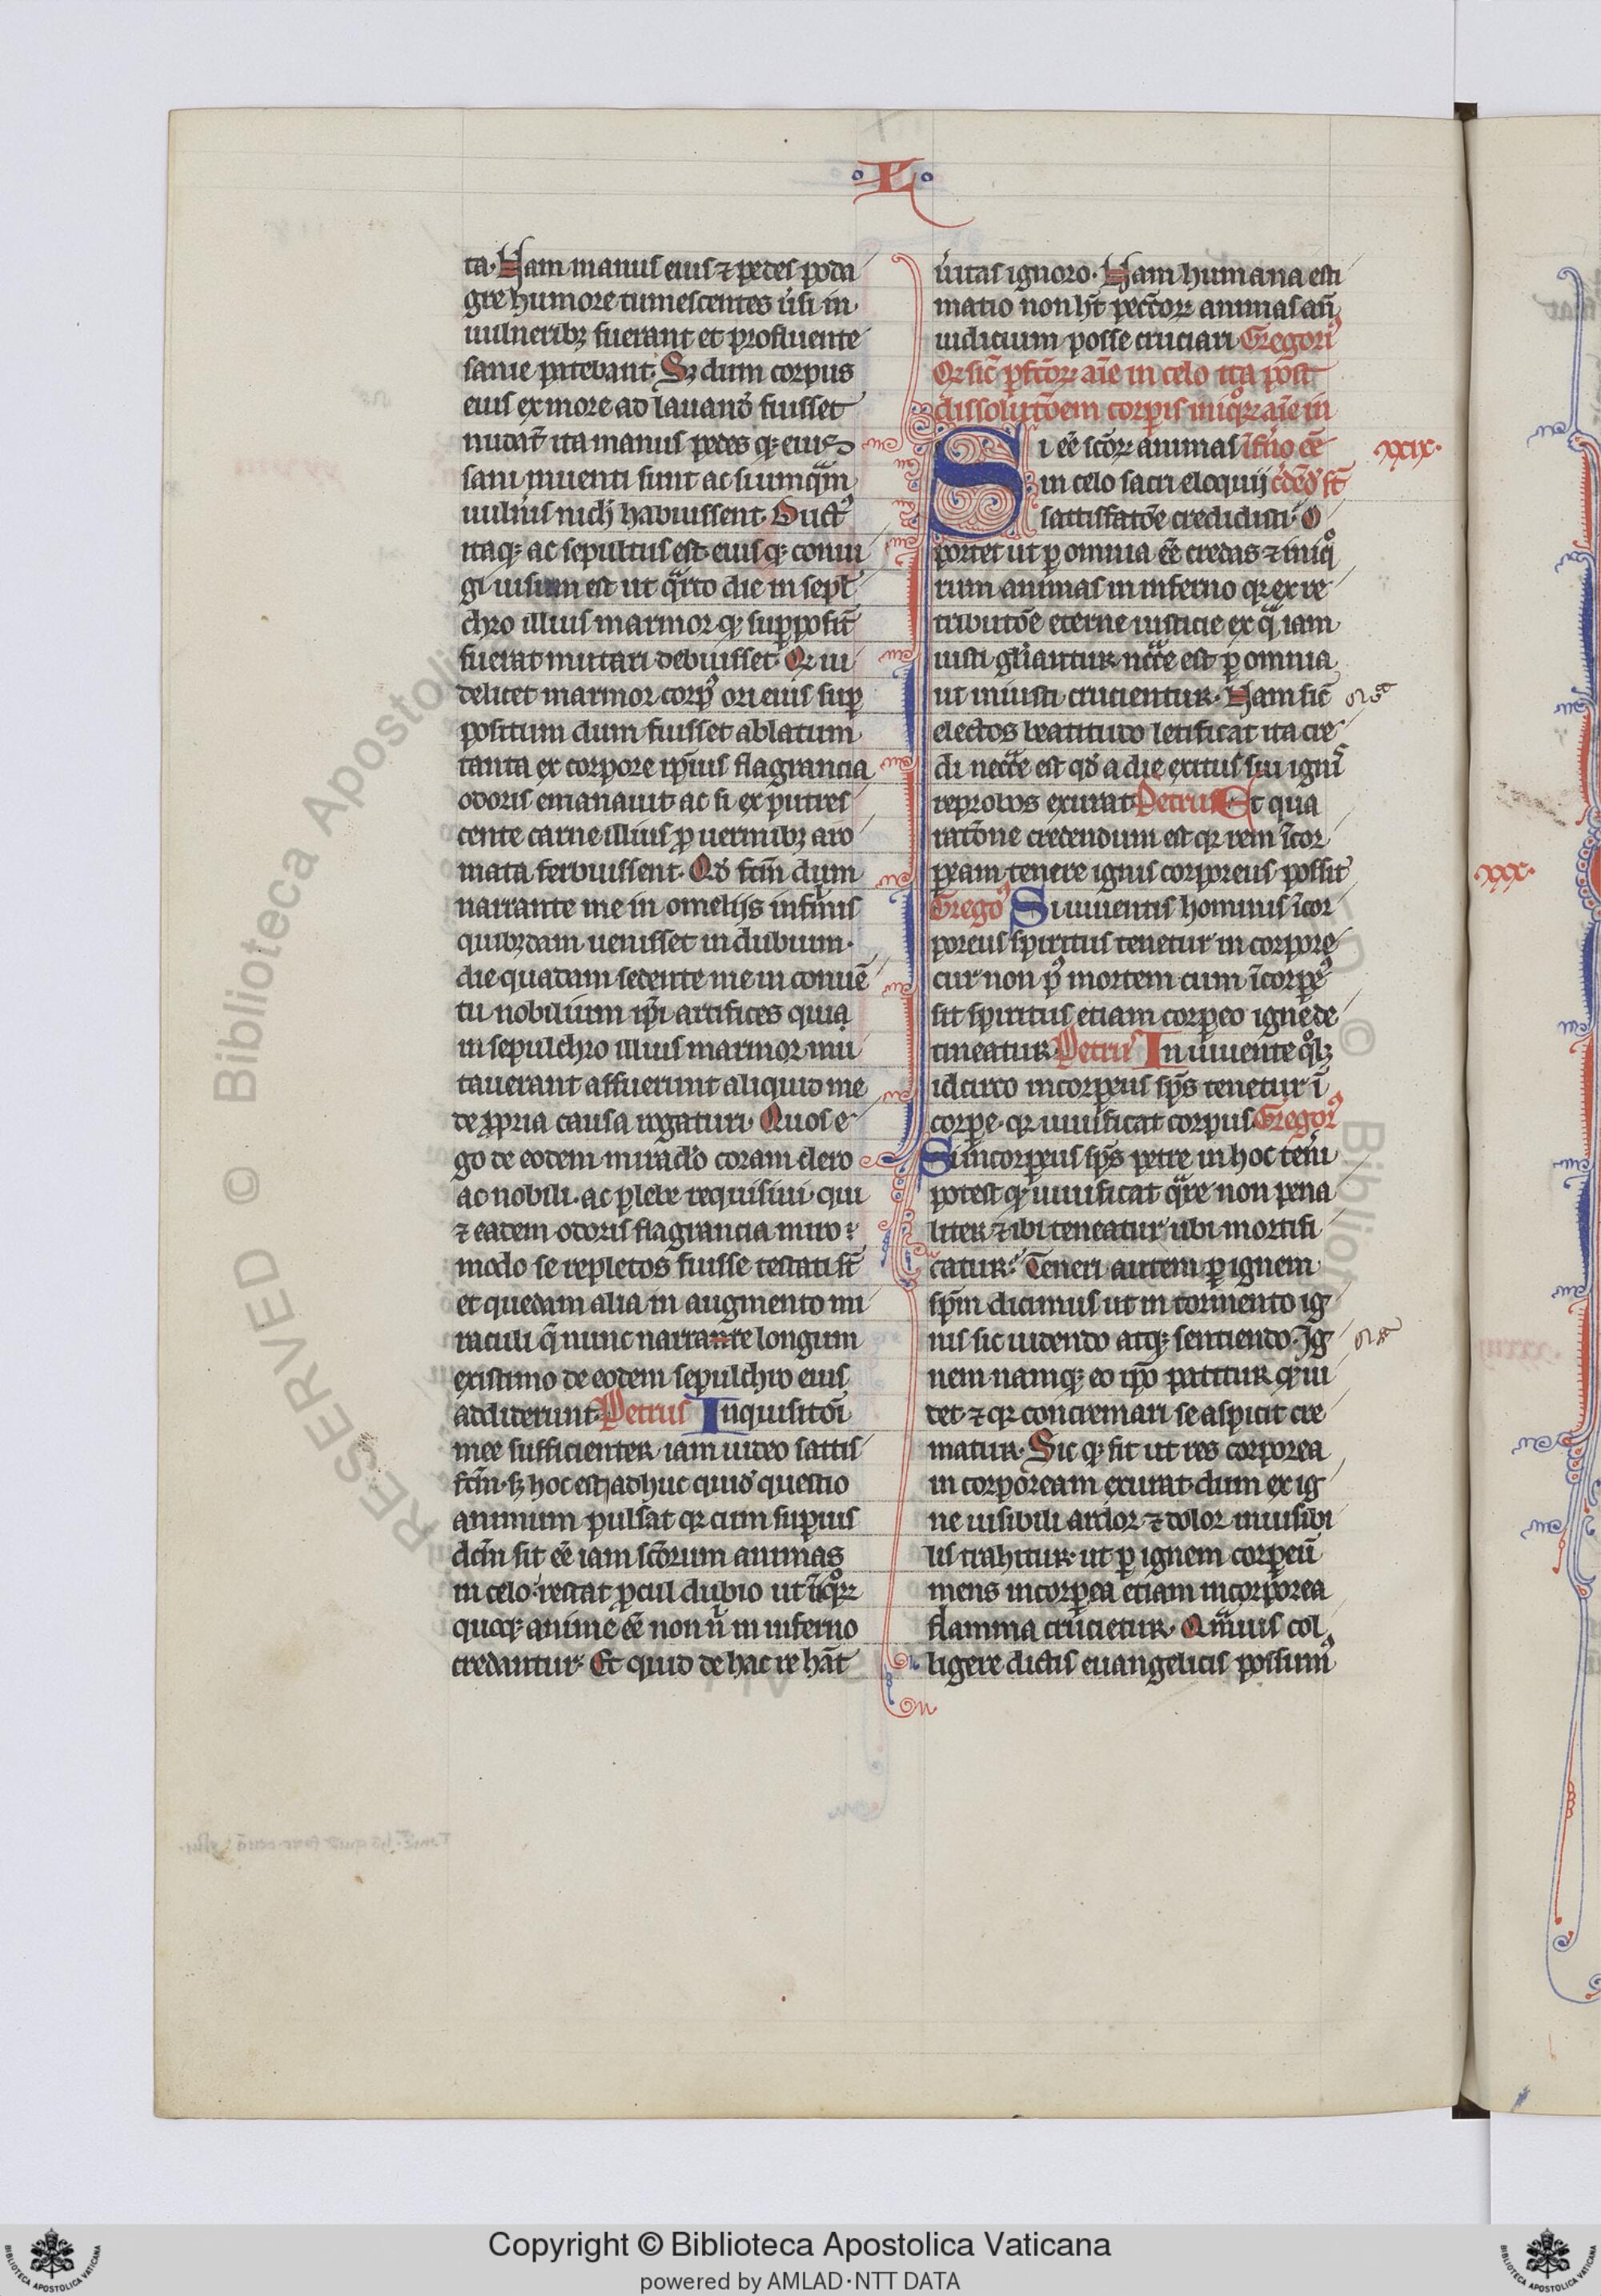 L
ta. Nam manus eius ⁊ pedes poda
gre humore tumescentes ůsi in
uulneribꝫ fuerant et profluente
sanie patebant. Sꝫ dum corpus
eius ex more ad lauand̄ fuisset
nudat̄ ita manus pedesqꝫ eius
sani inuenti sunt ac si umq̄m
uuln̄is nichil habuissent. Duct᷒
itaqꝫ ac sepultus est. eiusqꝫ coniu
gi uisum est ut q̄rto die in sepl̄
chro illius marmor qꝫ supposit̄
fuerat mutari debuisset. Qꝛ ui
delicet marmor corp᷒i eius suꝑ
positum dum fuisset ablatum
tanta ex corpore ip̄ius flagrancia
odoris emanauit ac si ex putres
cente carne illius ꝓ uermibꝫ aro
mata ferbuissent. Qd̄ fc̄m dum
narrante me in omelijs infirmis
quibꝫdam uenisset in dubium.
die quadam sedente me in conuē
tu nobilium ip̄i artifices quia
in sepulchro illius marmor mu
tauerant affuerunt aliquid me
de ꝓpria causa rogaturi. Quos e
go de eodem miraclo coram clero
ac nobili. ac plebe requisiui. qui
⁊ eadem odoris flagrancia miro
modo se repletos fuisse testati st̄
et quedam alia in augmento mi
raculi q̄ nunc narrare longum
existimo de eodem sepulchro eius
addiderunt. Petrus Inquisitōi
mee sufficienter iam uideo sattis
fc̄m. sꝫ hoc est adhuc quid questio
animum pulsat qꝛ cum superius
dc̄m sit eē iam sc̄orum animas
in celo. restat ꝓcul dubio ut īiqꝛ
quoqꝫ anime eē non n̄ in inferno
credantur. Et quid de hac re hāt
ůitas ignoro. Nam humana esti
matio non ht̄ pecc̄oꝝ animas an̄
iudicium posse cruciari Gregori᷒
Qꝛ sic̄ ꝑfc̄oꝝ aīe in celo ita post
dissolutōem corpis iniqoꝝ aīe in
Si eē sc̄oꝝ animas īfn̄o eē
in celo sacri eloquij cd̄ēd̄ st̄
sattisfatōe credidisti. O
portet ut ꝑ omnia eē credas ⁊ iniqͦ
rum animas in inferno qꝛ ex re
tributōe eterne iusticie ex q̄ iam
iusti gl̄iantur nccē est ꝑ omnia
ut iniusti crucientur. Nam sic̄
electos beatitudo letificat ita cre
di neccē est qd̄ a die exitus sui ign̄s
reprobos exurat Petrus Et qua
ratōne credendum est qꝛ rem īcor
ꝑeam tenere ignis corporeus possit
Grego᷒ Si uiuentis hominis īcor
poreus spiritus tenetur in corpore
cur non ꝑ᷒ mortem cum īcorpe᷒
sit spiritus etiam corꝑeo igne de
tineatur Petrus In uiuente qͦlꝫ
idcirco incorꝑeus sp̄s tenetur ī
corꝑe. qꝛ uiuificat corpus Gregor᷒
Si incorꝑeus sp̄s petre in hoc tēn̄i
potest qꝫ uiuificat q̄re non pena
liter ⁊ ibi teneatur ubi mortifi
catur. Teneri autem ꝑ ignem
sp̄m dicimus ut in tormento ig
nis sic uidendo atqꝫ sentiendo. Ig
nem namqꝫ eo ip̄o patitur qꝫ ui
det ⁊ qꝛ concremari se aspicit cre
matur. Sicqꝫ fit ut res corporea
in corpoream exurat. dum ex ig
ne uisibili ardor ⁊ dolor inuisibi
lis trahitur. ut ꝑ ignem corꝑeū
mens incorꝑea etiam incorporea
flamma crucietur. Qm̄uis col
ligere dictis euangelicis possum᷒
xxix.
xxx.
Copyright © Biblioteca Apostolica Vaticana
powered by AMLAD·NTT DATA
RESERVED © Biblioteca Apostoli
© Bibliot